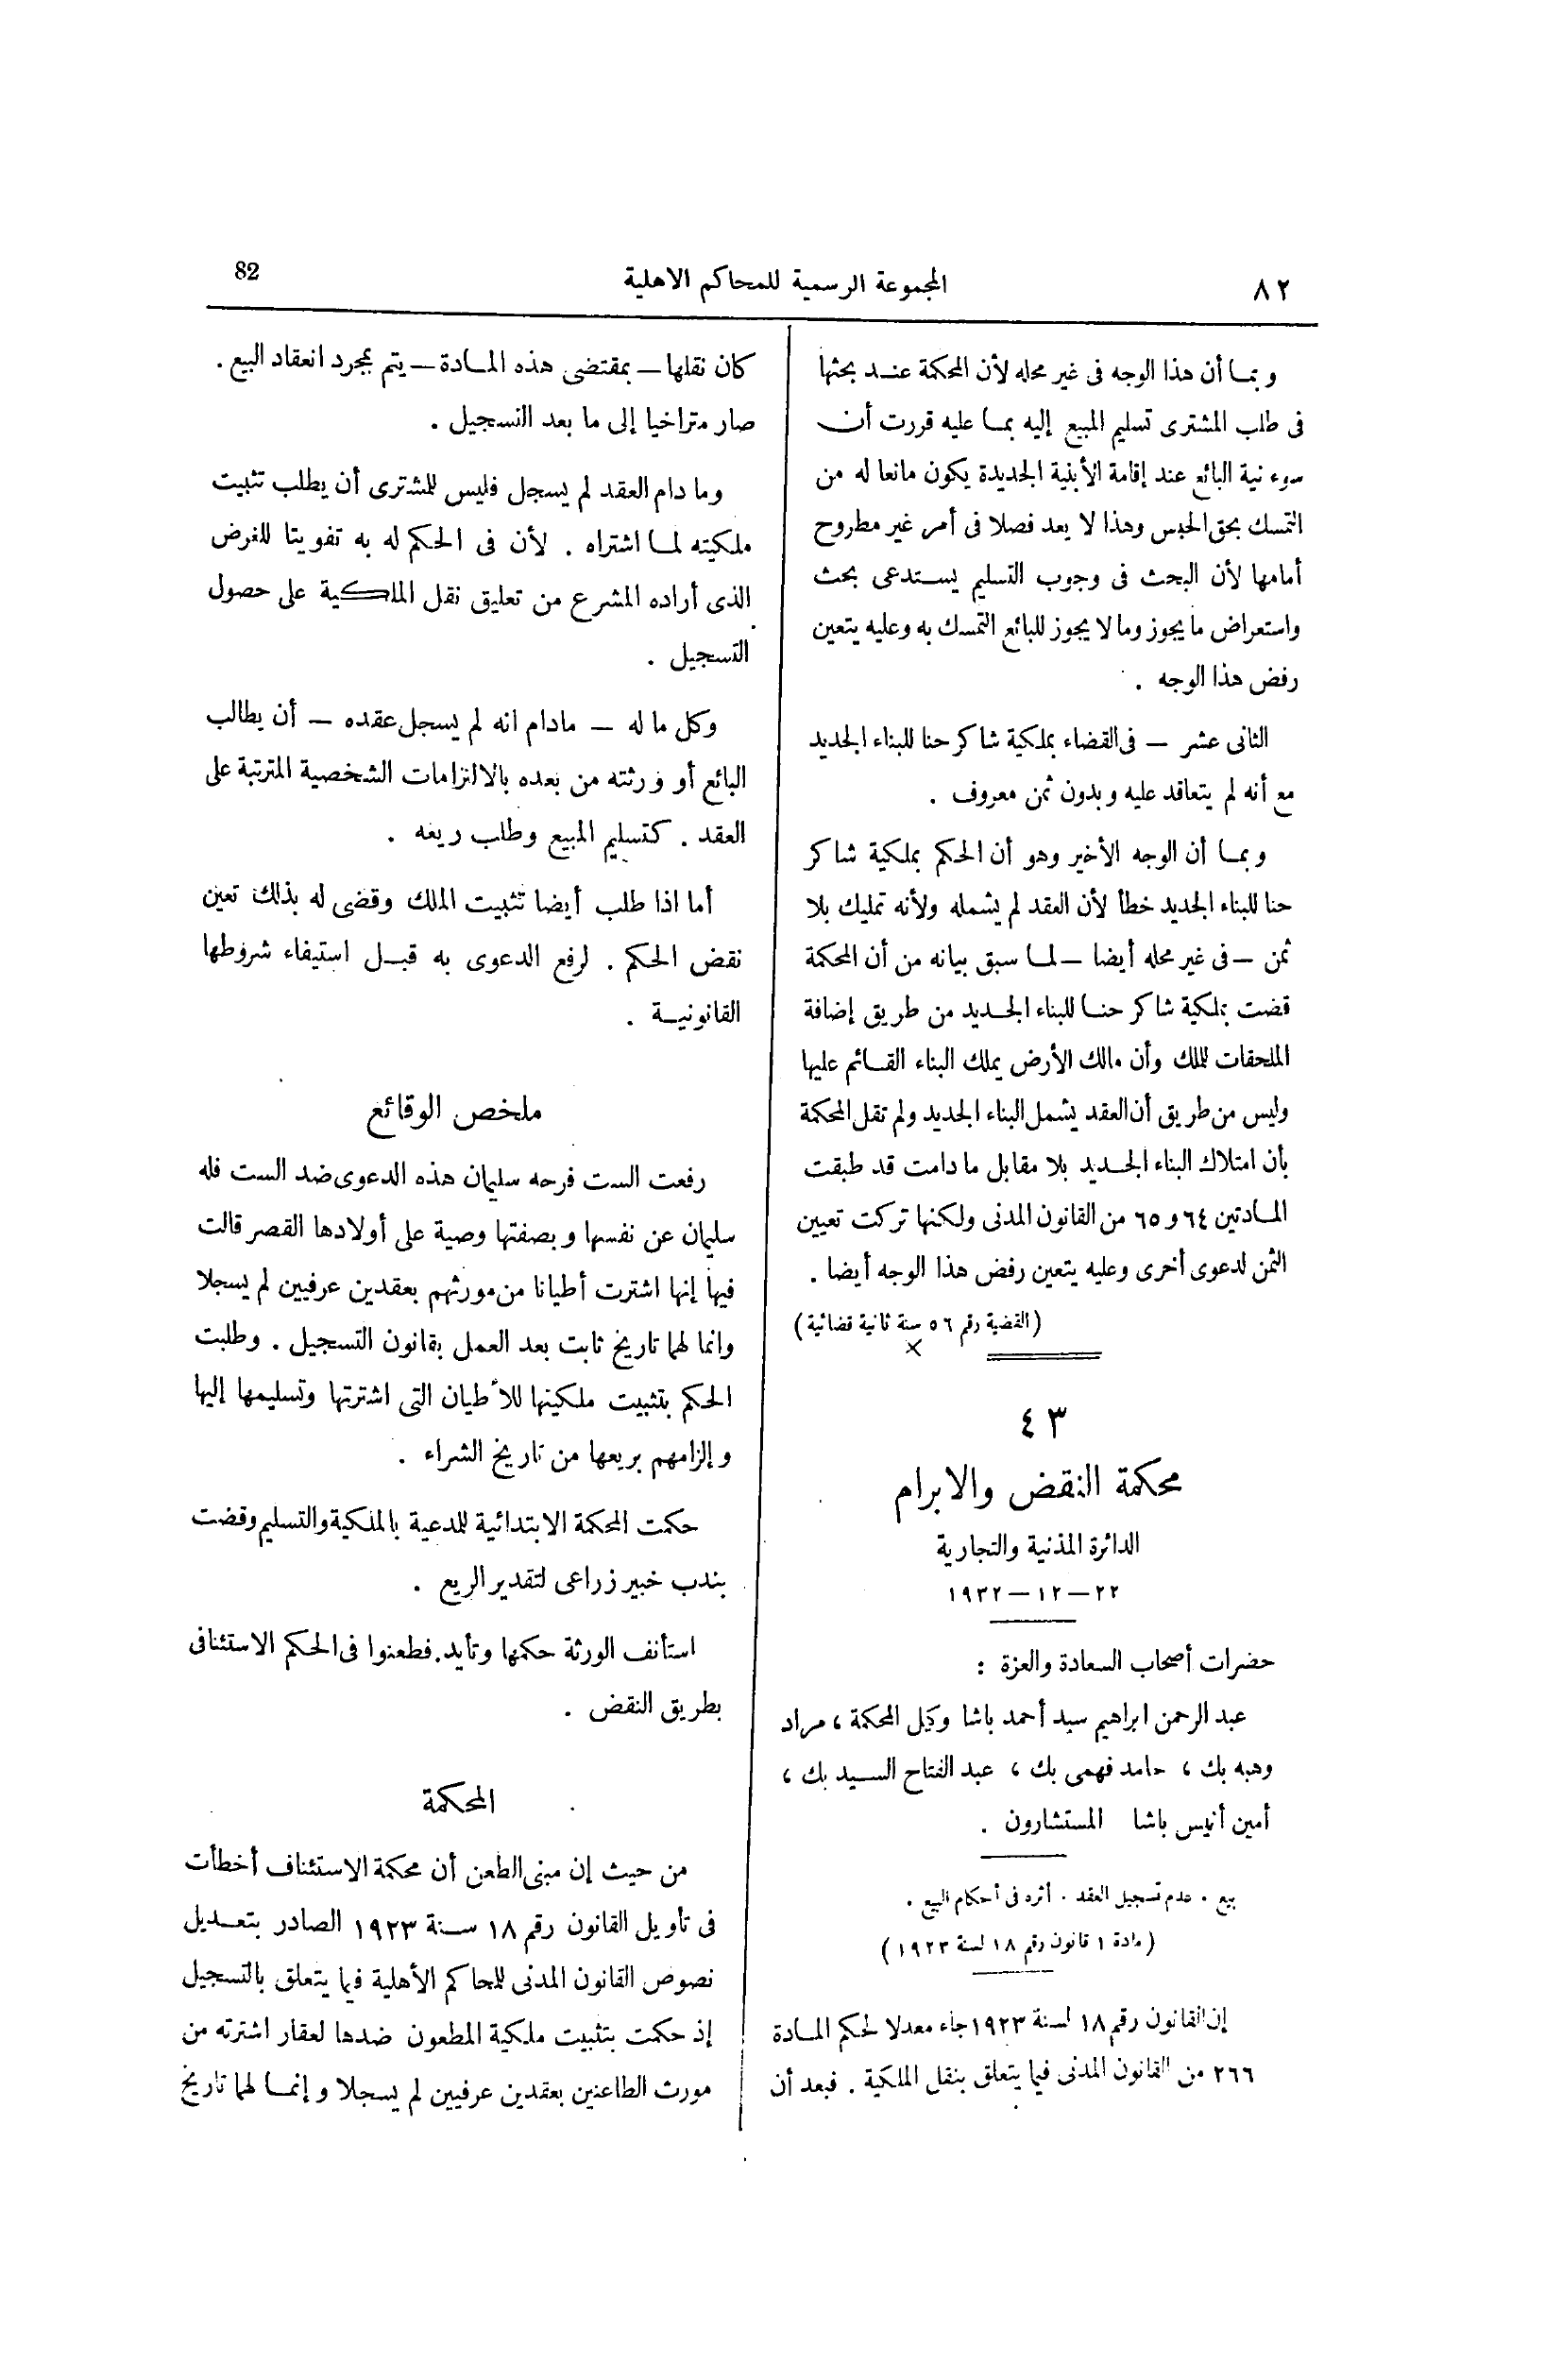 ٨٢
المجموعة الرسمية للمحاكم الاهلية
82
وبما أن هذا الوجه فى غير محله لأن المحكمة عند بحثها
فى طلب المشترى تسليم المبيع إليه بما عليه قررت أن
سوء نية البائع عند إقامة الأبنية الجديدة يكون مانعا له من
التمسك بحق الحبس وهذا لا يعد فصلا فى أمر غير مطروح
أمامها لأن البحث فى وجوب التسليم يستدعى بحث
واستعراض ما يجوز وما لا يجوز للبائع التمسك به وعليه يتعين
رفض هذا الوجه .
الثانى عشر — فى القضاء بملكية شاكر حنا للبناء الجديد
مع أنه لم يتعاقد عليه وبدون ثمن معروف .
وبما أن الوجه الأخير وهو أن الحكم بملكية شاكر
حنا للبناء الجديد خطأ لأن العقد لم يشمله ولأنه تمليك بلا
ثمن — فى غير محله أيضا — لما سبق بيانه من أن المحكمة
قضت بملكية شاكر حنا للبناء الجديد من طريق إضافة
الملحقات للملك وأن مالك الأرض يملك البناء القائم عليها
وليس من طريق أن العقد يشمل البناء الجديد ولم تقل المحكمة
بأن امتلاك البناء الجديد بلا مقابل ما دامت قد طبقت
المادتين ٦٤ و ٦٥ من القانون المدنى ولكنها تركت تعيين
الثمن لدعوى أخرى وعليه يتعين رفض هذا الوجه أيضا .
(القضية رقم ٥٦ سنة ثانية قضائية)
٤٣
محكمة النقض والابرام
الدائرة المدنية والتجارية
٢٢ — ١٢ — ١٩٣٢
حضرات أصحاب السعادة والعزة :
عبد الرحمن ابراهيم سيد أحمد باشا وكيل المحكمة ، مراد
وهبه بك ، حامد فهمى بك ، عبد الفتاح السيد بك ،
أمين أنيس باشا المستشارون .
بيع . عدم تسجيل العقد . أثره فى أحكام البيع .
(مادة ١ قانون رقم ١٨ لسنة ١٩٢٣)
إن القانون رقم ١٨ لسنة ١٩٢٣ جاء معدلا لحكم المادة
٢٦٦ من القانون المدنى فيما يتعلق بنقل الملكية . فبعد أن
كان نقلها — بمقتضى هذه المادة — يتم بمجرد انعقاد البيع .
صار متراخيا إلى ما بعد التسجيل .
وما دام العقد لم يسجل فليس للمشترى أن يطلب تثبيت
ملكيته لما اشتراه . لأن فى الحكم له به تفويتا للغرض
الذى أراده المشرع من تعليق نقل الملكية على حصول
التسجيل .
وكل ما له — مادام انه لم يسجل عقده — أن يطالب
البائع أو ورثته من بعده بالالتزامات الشخصية المترتبة على
العقد . كتسليم المبيع وطلب ريعه .
أما اذا طلب أيضا تثبيت الملك وقضى له بذلك تعين
نقض الحكم . لرفع الدعوى به قبل استيفاء شروطها
القانونية .
ملخص الوقائع
رفعت الست فرحه سليمان هذه الدعوى ضد الست فله
سليمان عن نفسها وبصفتها وصية على أولادها القصر قالت
فيها إنها اشترت أطيانا من مورثهم بعقدين عرفيين لم يسجلا
وانما لهما تاريخ ثابت بعد العمل بقانون التسجيل . وطلبت
الحكم بتثبيت ملكيتها للأطيان التى اشترتها وتسليمها إليها
وإلزامهم بريعها من تاريخ الشراء .
حكمت المحكمة الابتدائية للمدعية بالملكية والتسليم وقضت
بندب خبير زراعى لتقدير الريع .
استأنف الورثة حكمها وتأيد. فطعنوا فى الحكم الاستئنافى
بطريق النقض .
المحكمة
من حيث إن مبنى الطعن أن محكمة الاستئناف أخطأت
فى تأويل القانون رقم ١٨ سنة ١٩٢٣ الصادر بتعديل
نصوص القانون المدنى للمحاكم الأهلية فيما يتعلق بالتسجيل
إذ حكمت بتثبيت ملكية المطعون ضدها لعقار اشترته من
مورث الطاعنين بعقدين عرفيين لم يسجلا وإنما لهما تاريخ